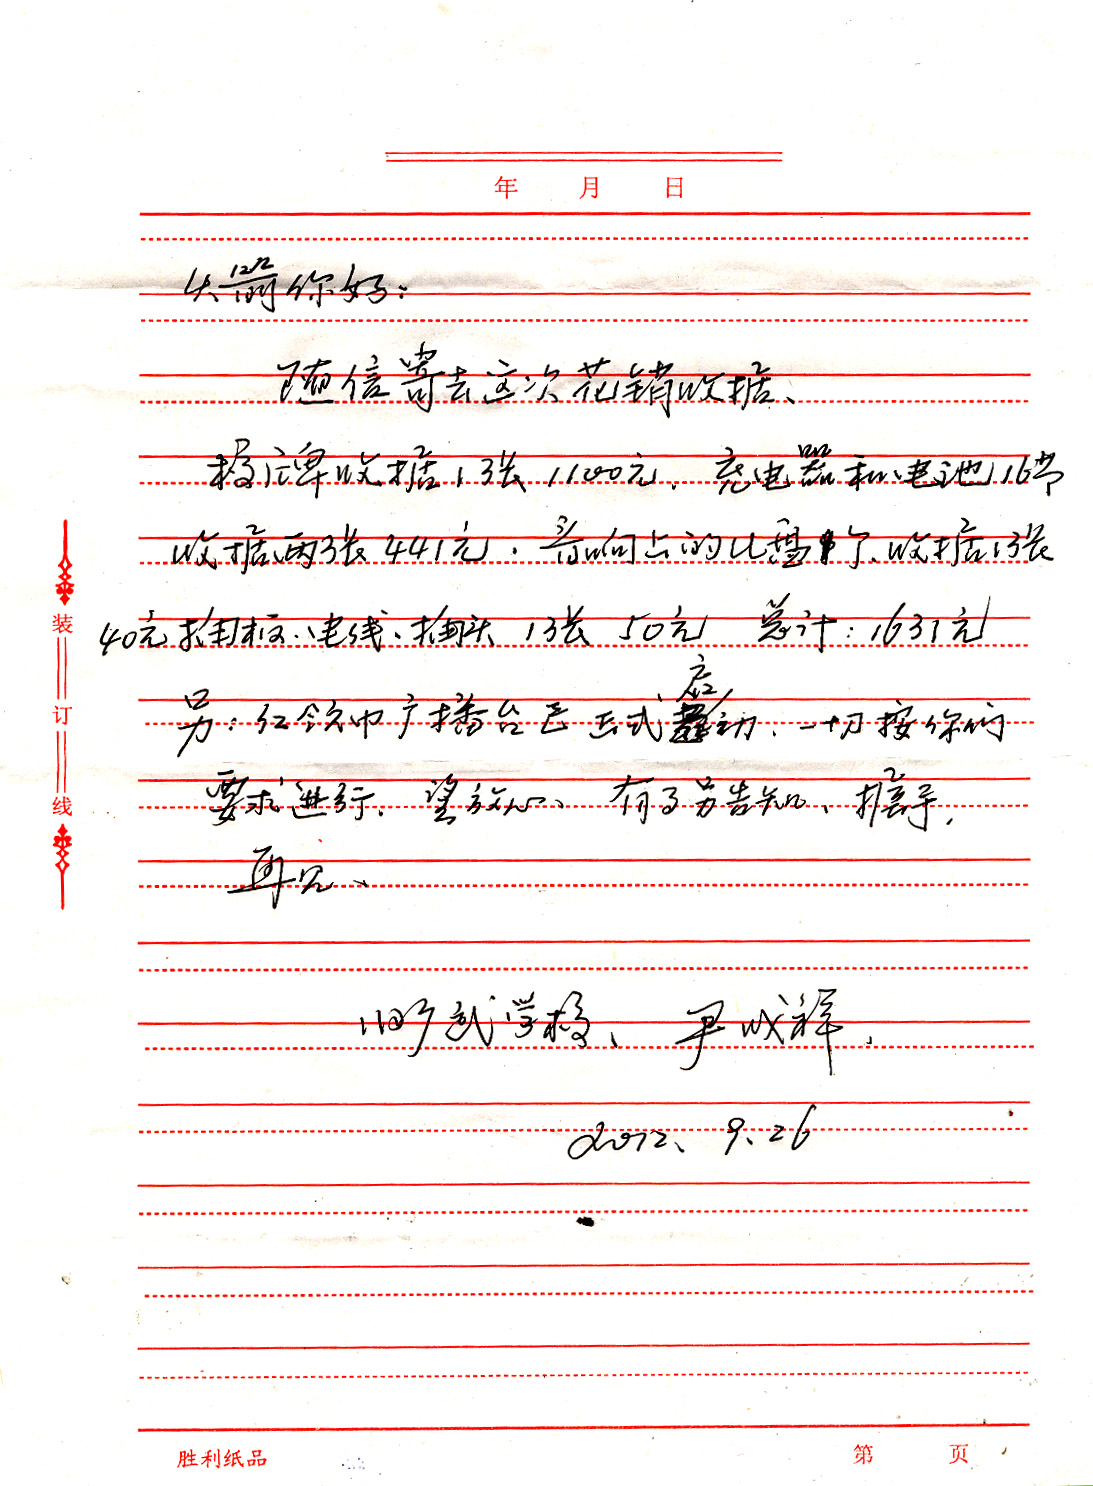 年 月 日
大箭你好：
随信寄去这次花销收据、
校牌收据1张1100元、充电器和电池16节
收据两张441元．音响上的U盘1个、收据1张
40元 插板、电线、插头 1张 50元 总计：1631元
另：红领巾广播台已正式启动、一切按你们
要求进行、望放心、有事另告知、握手，
再见、
旧武学校、尹成祥．
2012、9、26
装
订
线
胜利纸品 第 页